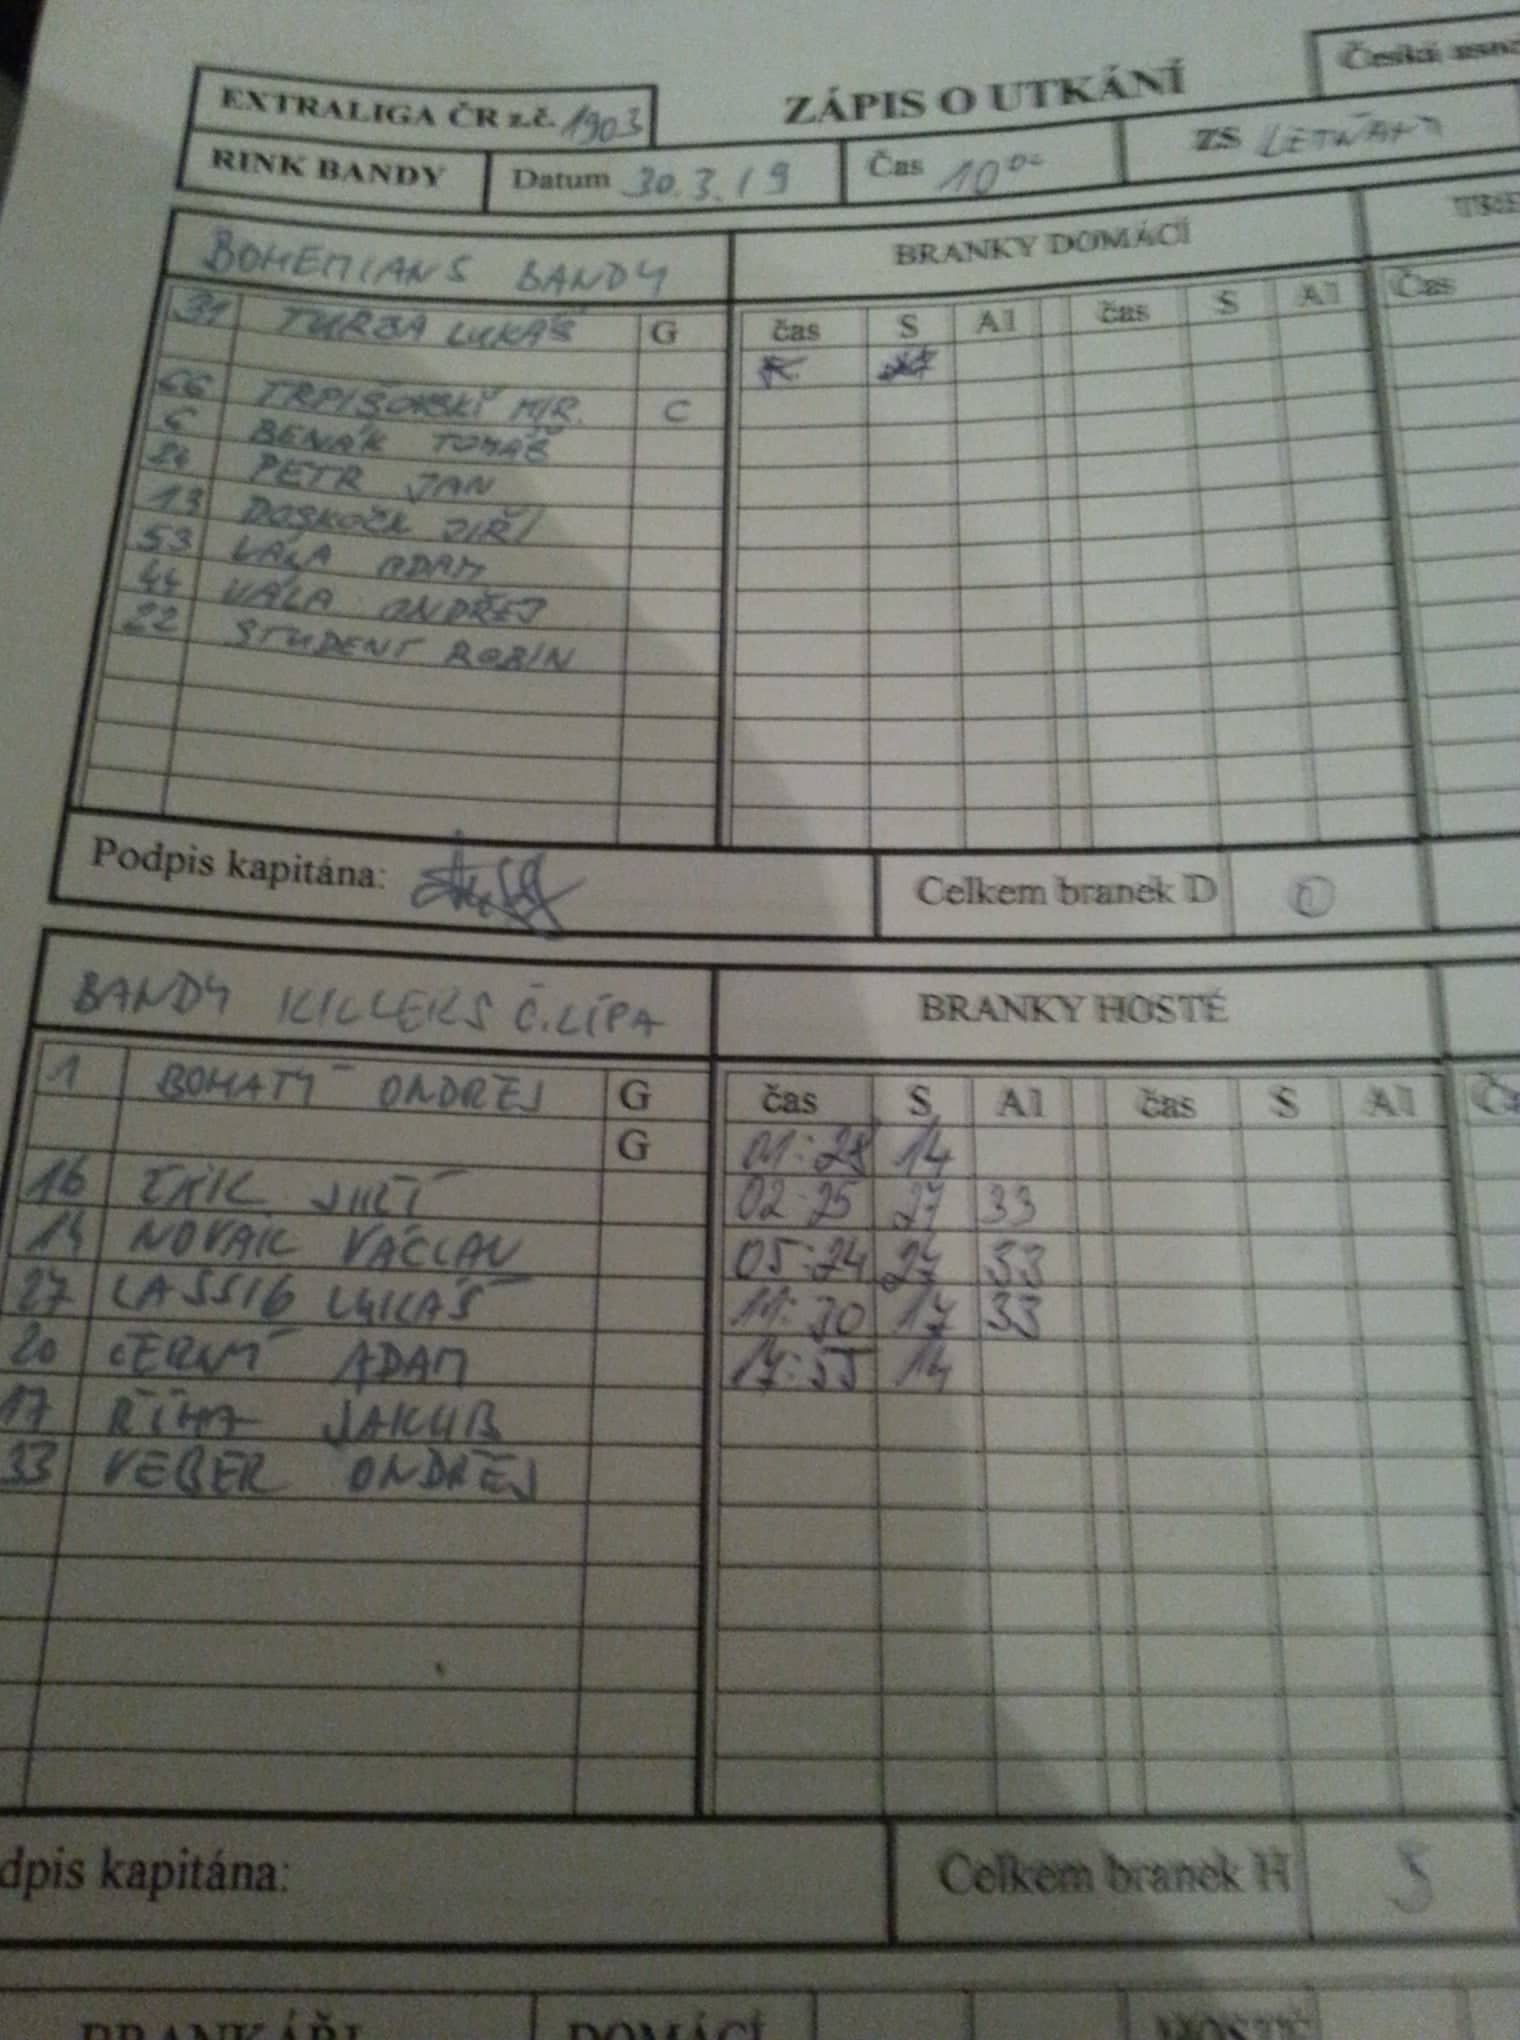 Česká
EXTRALIGA ČR z.č. 1903 ZÁPIS O UTKÁNÍ
RINK BANDY Datum 30.3.19 Čas 10⁰⁰ ZS LETŇANY
BOHEMIANS BANDY BRANKY DOMÁCÍ
31 TURBA LUKÁŠ G čas S A1 čas S A1 Čas
66 TRPIŠOVSKÝ MIR. C
6 BENÁK TOMÁŠ
24 PETR JAN
13 DOSKOČIL JIŘÍ
53 VÁLA ADAM
44 VÁLA ONDŘEJ
22 STUDENT ROBIN
Podpis kapitána: Celkem branek D 0
BANDY KILLERS Č.LÍPA BRANKY HOSTÉ
1 BOHATÝ ONDŘEJ G čas S A1 čas S A1
G 01:28 14
16 JIŘÍ 02:25 27 33
14 NOVÁK VÁCLAV 05:24 27 33
27 LASSIG LUKÁŠ 11:30 17 33
20 ČERNÝ ADAM 17:55 14
17 ŘÍHA JAKUB
33 VEBER ONDŘEJ
dpis kapitána: Celkem branek H 5
BRANKÁŘI DOMÁCÍ HOSTÉ